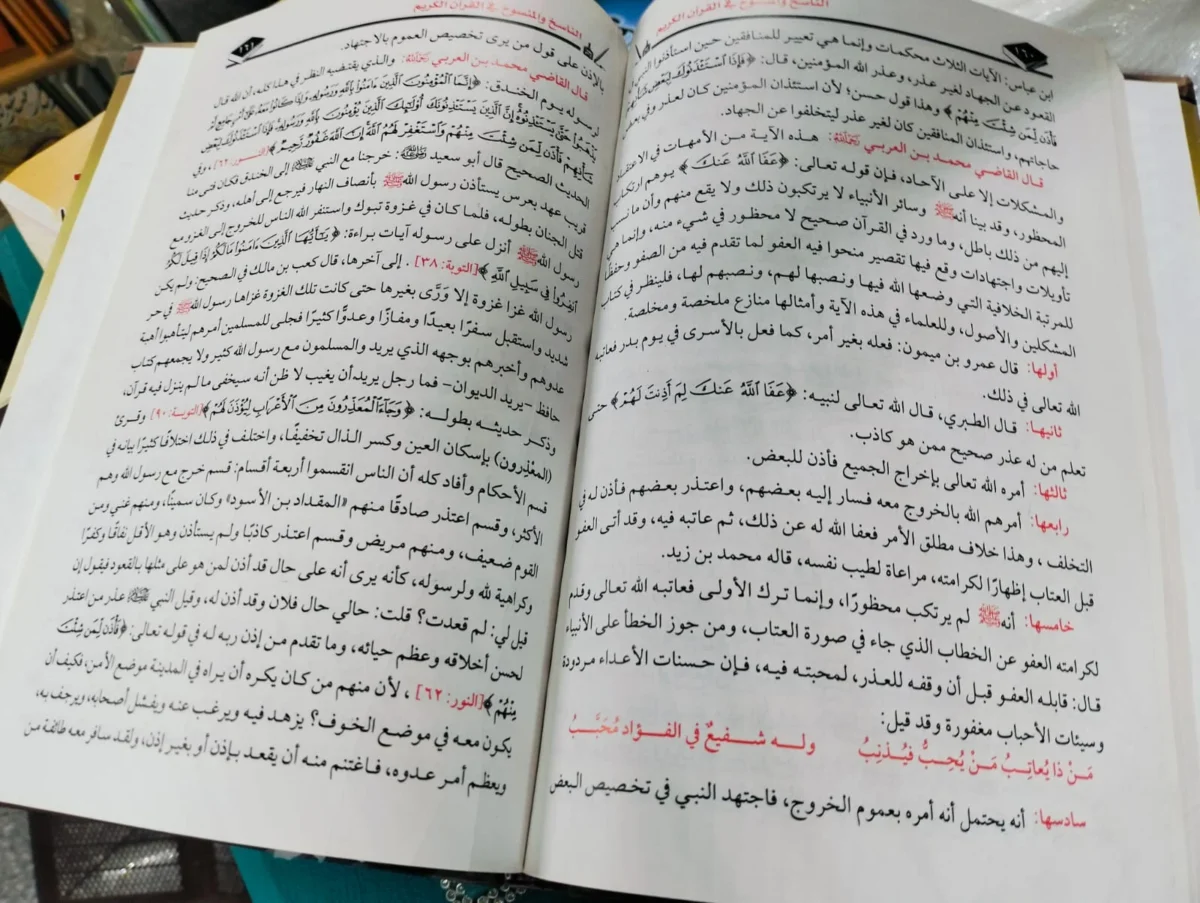 الناسخ والمنسوخ في القرآن الكريم
١٦٠
ابن عباس: الآيات الثلاث محكمات وإنما هي تعيير للمنافقين حين استأذنوا النبي
القعود عن الجهاد لغير عذر، وعذر الله المؤمنين، قال: ﴿فَإِذَا اسْتَأْذَنُوكَ لِبَعْضِ
فَأْذَن لِّمَن شِئْتَ مِنْهُمْ﴾ وهذا قول حسن؛ لأن استئذان المؤمنين كان لعذر وفي بعض
حاجاتهم، واستئذان المنافقين كان لغير عذر ليتخلفوا عن الجهاد.
قال القاضي محمد بن العربي رحمه الله: هذه الآية من الأمهات في الاعتقاد
والمشكلات إلا على الآحاد، فإن قوله تعالى: ﴿عَفَا اللَّهُ عَنكَ﴾ يوهم ارتكاب
المحظور، وقد بينا أنه ﷺ وسائر الأنبياء لا يرتكبون ذلك ولا يقع منهم وأن ما نسب
إليهم من ذلك باطل، وما ورد في القرآن صحيح لا محظور في شيء منه، وإنما هي
تأويلات واجتهادات وقع فيها تقصير منحوا فيه العفو لما تقدم فيه من الصفو وحفظًا
للمرتبة الخلافية التي وضعها الله فيها ونصبها لهم، ونصبهم لها، فلينظر في كتاب
المشكلين والأصول، وللعلماء في هذه الآية وأمثالها منازع ملخصة ومخلصة.
أولها: قال عمرو بن ميمون: فعله بغير أمر، كما فعل بالأسرى في يوم بدر فعاتبه
الله تعالى في ذلك.
ثانيها: قال الطبري، قال الله تعالى لنبيه: ﴿عَفَا اللَّهُ عَنكَ لِمَ أَذِنتَ لَهُمْ﴾ حتى
تعلم من له عذر صحيح ممن هو كاذب.
ثالثها: أمره الله تعالى بإخراج الجميع فأذن للبعض.
رابعها: أمرهم الله بالخروج معه فسار إليه بعضهم، واعتذر بعضهم فأذن له في
التخلف، وهذا خلاف مطلق الأمر فعفا الله له عن ذلك، ثم عاتبه فيه، وقد أتى العفو
قبل العتاب إظهارًا لكرامته، مراعاة لطيب نفسه، قاله محمد بن زيد.
خامسها: أنه ﷺ لم يرتكب محظورًا، وإنما ترك الأولى فعاتبه الله تعالى وقدم
لكرامته العفو عن الخطاب الذي جاء في صورة العتاب، ومن جوز الخطأ على الأنبياء
قال: قابله العفو قبل أن وقفه للعذر، لمحبته فيه، فإن حسنات الأعداء مردودة
وسيئات الأحباب مغفورة وقد قيل:
مَنْ ذا يُعاتِبُ مَنْ يُحِبُّ فيُذنِبُ وله شفيعٌ في الفؤاد مُحَبَّبُ
سادسها: أنه يحتمل أنه أمره بعموم الخروج، فاجتهد النبي في تخصيص البعض
الناسخ والمنسوخ في القرآن الكريم
١٦١
بالإذن على قول من يرى تخصيص العموم بالاجتهاد.
قال القاضي محمد بن العربي رحمه الله: والذي يقتضيه النظر في هذا كله، أن الله قال
لرسوله يوم الخندق: ﴿إِنَّمَا الْمُؤْمِنُونَ الَّذِينَ آمَنُوا بِاللَّهِ وَرَسُولِهِ وَإِذَا كَانُوا مَعَهُ عَلَىٰ أَمْرٍ جَامِعٍ لَّمْ
يَذْهَبُوا حَتَّىٰ يَسْتَأْذِنُوهُ إِنَّ الَّذِينَ يَسْتَأْذِنُونَكَ أُولَٰئِكَ الَّذِينَ يُؤْمِنُونَ بِاللَّهِ وَرَسُولِهِ فَإِذَا اسْتَأْذَنُوكَ لِبَعْضِ
شَأْنِهِمْ فَأْذَن لِّمَن شِئْتَ مِنْهُمْ وَاسْتَغْفِرْ لَهُمُ اللَّهَ إِنَّ اللَّهَ غَفُورٌ رَّحِيمٌ﴾ [النور: ٦٢]، وفي
الحديث الصحيح قال أبو سعيد رضي الله عنه: خرجنا مع النبي ﷺ إلى الخندق فكان فتى منا
قريب عهد بعرس يستأذن رسول الله ﷺ بأنصاف النهار فيرجع إلى أهله، وذكر حديث
قتل الجنان بطوله، فلما كان في غزوة تبوك واستنفر الله الناس للخروج إلى الغزو مع
رسول الله ﷺ أنزل على رسوله آيات براءة: ﴿يَا أَيُّهَا الَّذِينَ آمَنُوا مَا لَكُمْ إِذَا قِيلَ لَكُمُ
انفِرُوا فِي سَبِيلِ اللَّهِ﴾ [التوبة: ٣٨]. إلى آخرها، قال كعب بن مالك في الصحيح: ولم يكن
رسول الله غزا غزوة إلا وَرَّى بغيرها حتى كانت تلك الغزوة غزاها رسول الله ﷺ في حر
شديد واستقبل سفرًا بعيدًا ومفازًا وعدوًّا كثيرًا فجلى للمسلمين أمرهم ليتأهبوا أهبة
عدوهم وأخبرهم بوجهه الذي يريد والمسلمون مع رسول الله كثير ولا يجمعهم كتاب
حافظ –يريد الديوان– فما رجل يريد أن يغيب لا ظن أنه سيخفى ما لم ينزل فيه قرآن،
وذكر حديثه بطوله: ﴿وَجَاءَ الْمُعَذِّرُونَ مِنَ الْأَعْرَابِ لِيُؤْذَنَ لَهُمْ﴾ [التوبة: ٩٠] وقرئ
(المعْذِرون) بإسكان العين وكسر الذال تخفيفًا، واختلف في ذلك اختلافًا كثيرًا بيانه في
قسم الأحكام وأفاد كله أن الناس انقسموا أربعة أقسام: قسم خرج مع رسول الله وهم
الأكثر، وقسم اعتذر صادقًا منهم «المقداد بن الأسود» وكان سمينًا، ومنهم غني ومن
القوم ضعيف، ومنهم مريض وقسم اعتذر كاذبًا ولم يستأذن وهو الأقل نفاقًا وكفرًا
وكراهية لله ولرسوله، كأنه يرى أنه على حال قد أذن لمن هو على مثلها بالقعود فيقول إن
قيل لي: لم قعدت؟ قلت: حالي حال فلان وقد أذن له، وقيل النبي ﷺ عذر من اعتذر
لحسن أخلاقه وعظم حيائه، وما تقدم من إذن ربه له في قوله تعالى: ﴿فَأْذَن لِّمَن شِئْتَ
مِنْهُمْ﴾ [النور: ٦٢]، لأن منهم من كان يكره أن يراه في المدينة موضع الأمن، فكيف أن
يكون معه في موضع الخوف؟ يزهد فيه ويرغب عنه ويفشل أصحابه، ويرجف به،
ويعظم أمر عدوه، فاغتنم منه أن يقعد بإذن أو بغير إذن، ولقد سافر معه طائفة من